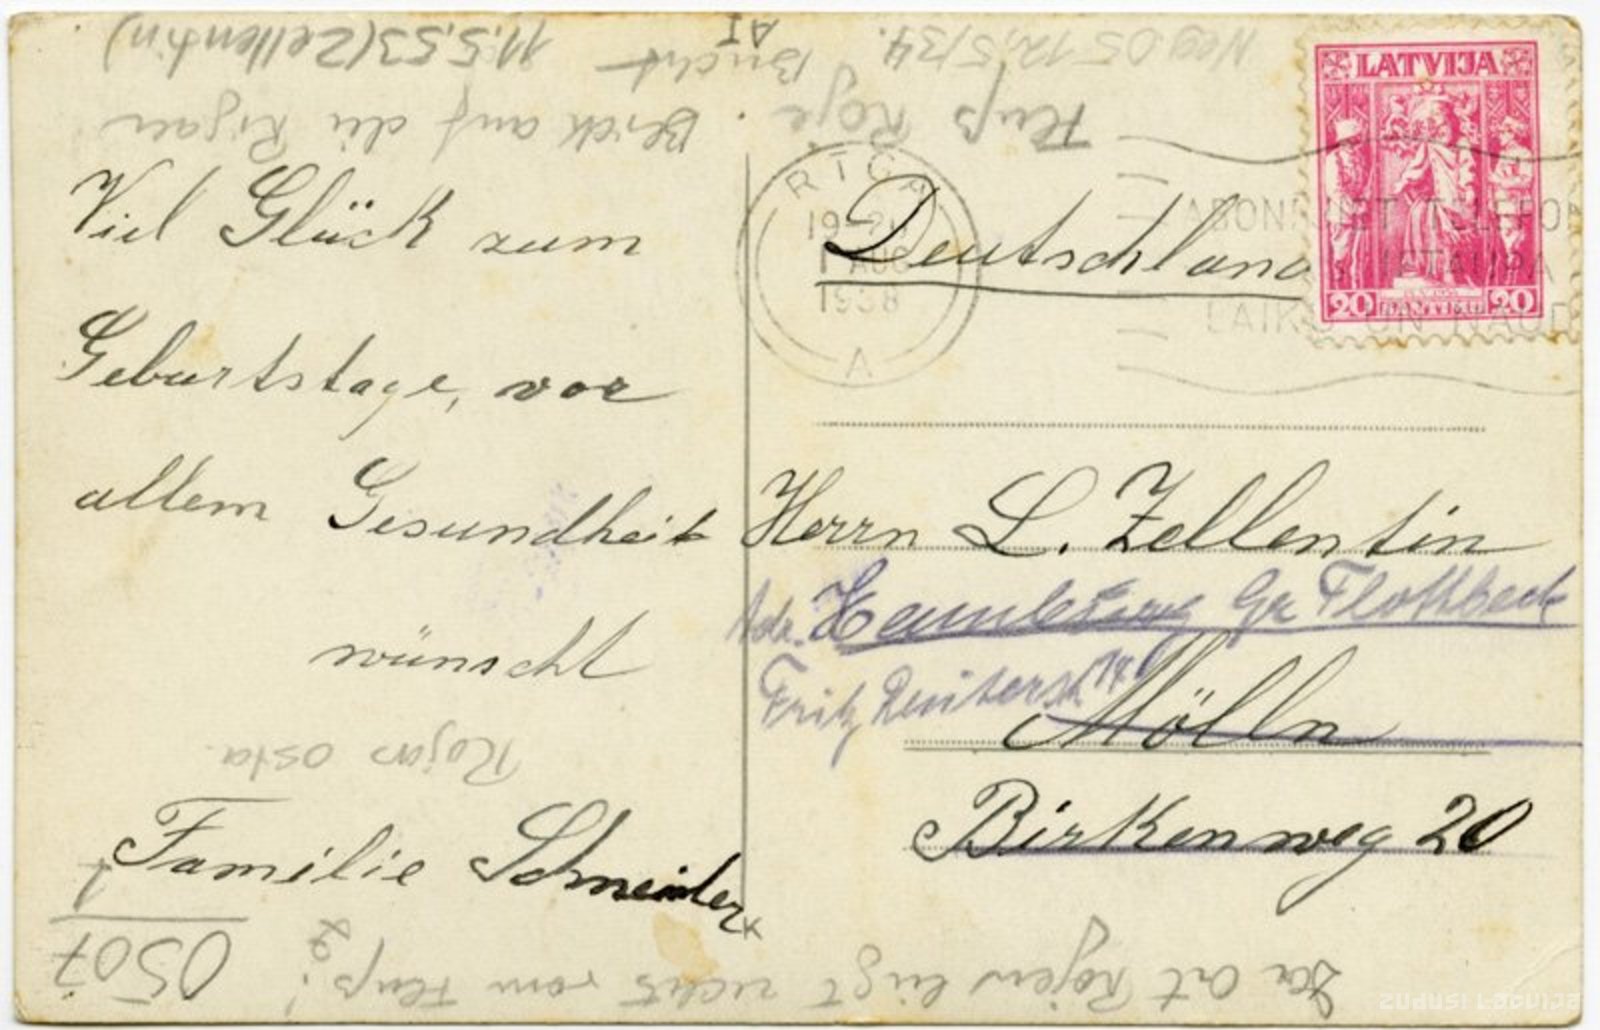 Viel Glück zum
Geburtstage, vor
allem Gesundheit
wünscht
Familie Schneider
Deutschland
Herrn L. Zellentin
Adr. Hamburg Gr Flottbeck
Fritz Reuterst 14
Mölln
Birkenweg 20
LATVIJA
20 SANTIMU 20
RIGA
19-20
1 AUG
1938
A
LAIKU UN NAUD
11.5.53 (Zellentin)
Neg. 05 12,5/34.
Bucht
Fluß Roje
Blick auf die Rigaer
Rojas osta
0507
1
Der Ort Rojen liegt rechts vom Fluß!
zudusi Latvija